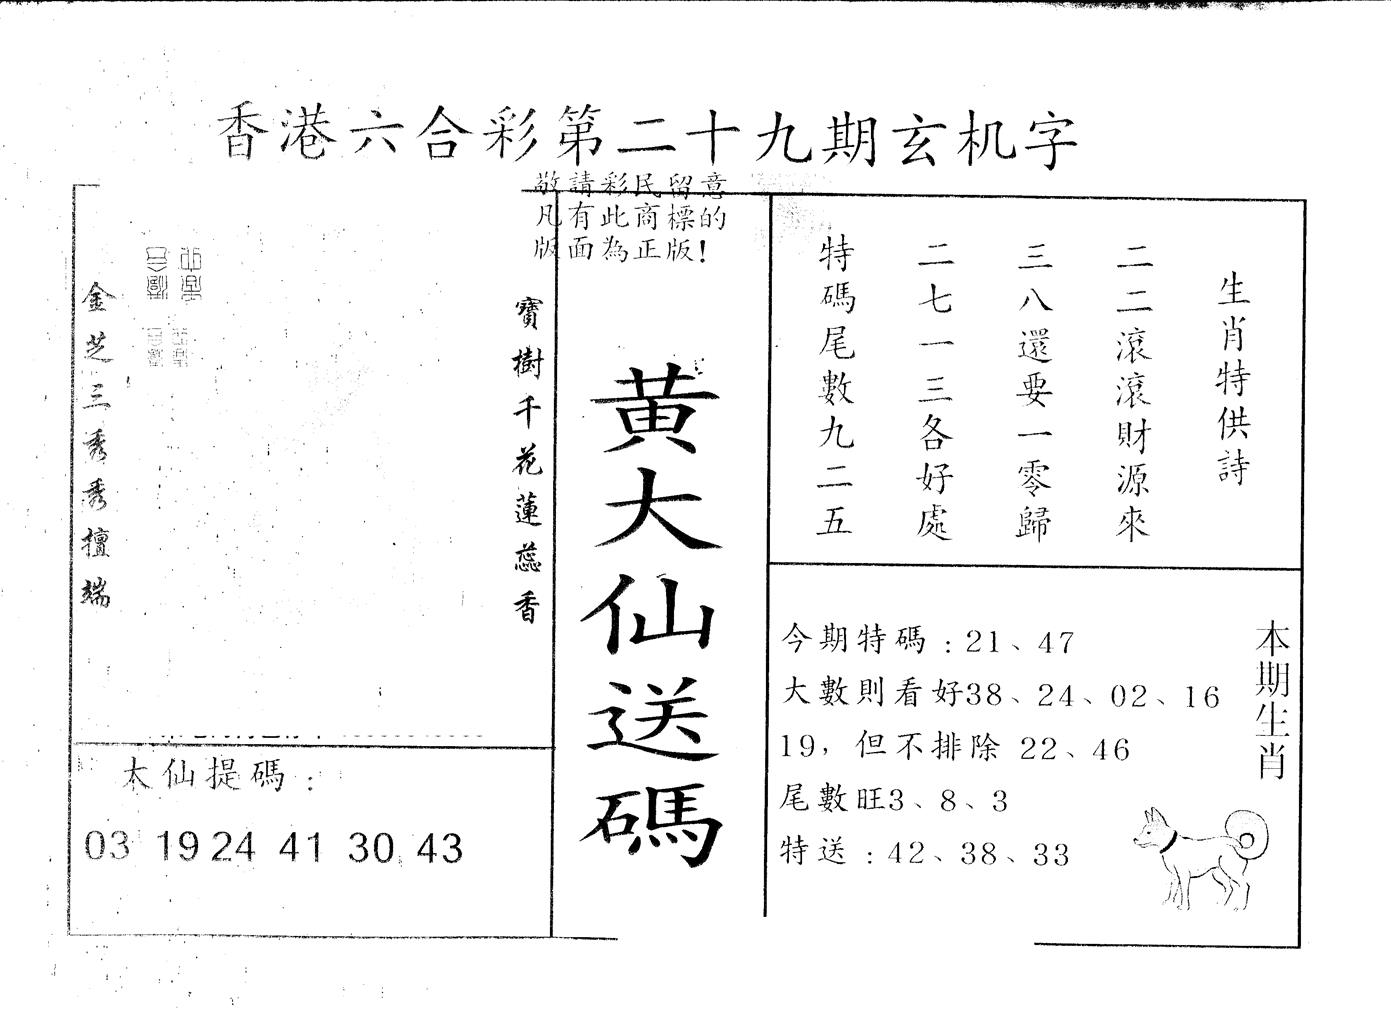 香港六合彩第二十九期玄机字
敬請彩民留意
凡有此商標的
版面為正版!
生肖特供詩
二二滾滾財源來
三八還要一零歸
二七一三各好處
特碼尾數九二五
黃大仙送碼
寶樹千花蓮蕊香
金芝三秀秀擅端
大仙提碼：
03 19 24 41 30 43
本期生肖
今期特碼：21、47
大數則看好38、24、02、16
19，但不排除 22、46
尾數旺3、8、3
特送：42、38、33